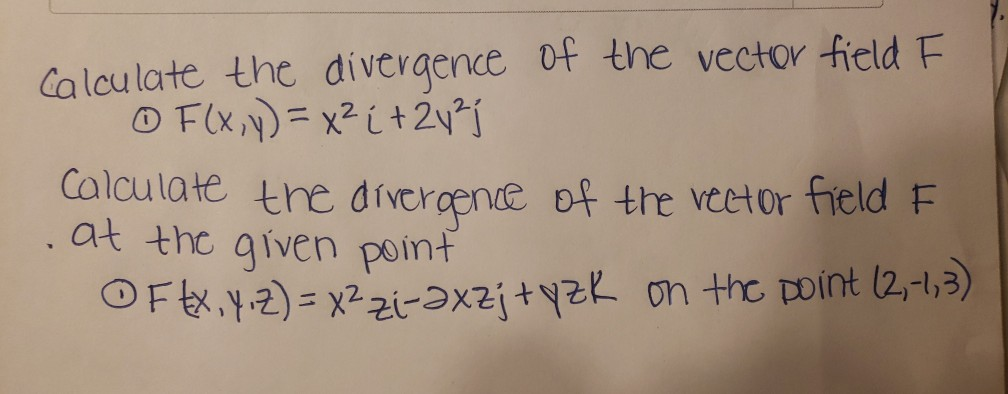 Calculate the divergence of the vector field F
① F(x,y) = x² i + 2y² j
Calculate the divergence of the vector field F
. at the given point
① F(x,y,z) = x² zi - 2xzj + yzk on the point (2,-1,3)